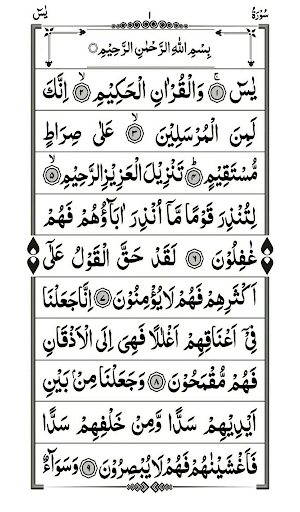 سُوْرَةُ ١ يٰسٓ
بِسْمِ اللهِ الرَّحْمٰنِ الرَّحِيْمِ
يٰسٓ ۝١ۙ وَالْقُرْاٰنِ الْحَكِيْمِ ۝٢ۙ اِنَّكَ
لَمِنَ الْمُرْسَلِيْنَ ۝٣ۙ عَلٰى صِرَاطٍ
مُّسْتَقِيْمٍ ۝٤ؕ تَنْزِيْلَ الْعَزِيْزِ الرَّحِيْمِ ۝٥ۙ
لِتُنْذِرَ قَوْمًا مَّاۤ اُنْذِرَ اٰبَآؤُهُمْ فَهُمْ
غٰفِلُوْنَ ۝٦ لَقَدْ حَقَّ الْقَوْلُ عَلٰۤى
اَكْثَرِهِمْ فَهُمْ لَا يُؤْمِنُوْنَ ۝٧ اِنَّا جَعَلْنَا
فِيْۤ اَعْنَاقِهِمْ اَغْلٰلًا فَهِىَ اِلَى الْاَذْقَانِ
فَهُمْ مُّقْمَحُوْنَ ۝٨ وَجَعَلْنَا مِنْۢ بَيْنِ
اَيْدِيْهِمْ سَدًّا وَّمِنْ خَلْفِهِمْ سَدًّا
فَاَغْشَيْنٰهُمْ فَهُمْ لَا يُبْصِرُوْنَ ۝٩ وَسَوَآءٌ